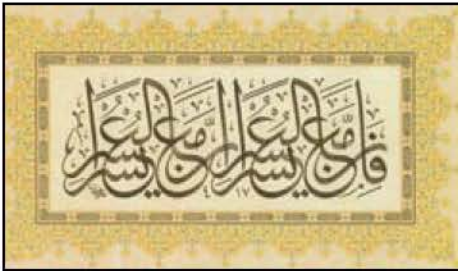 فإن مع العسر يسرا إن مع العسر يسرا